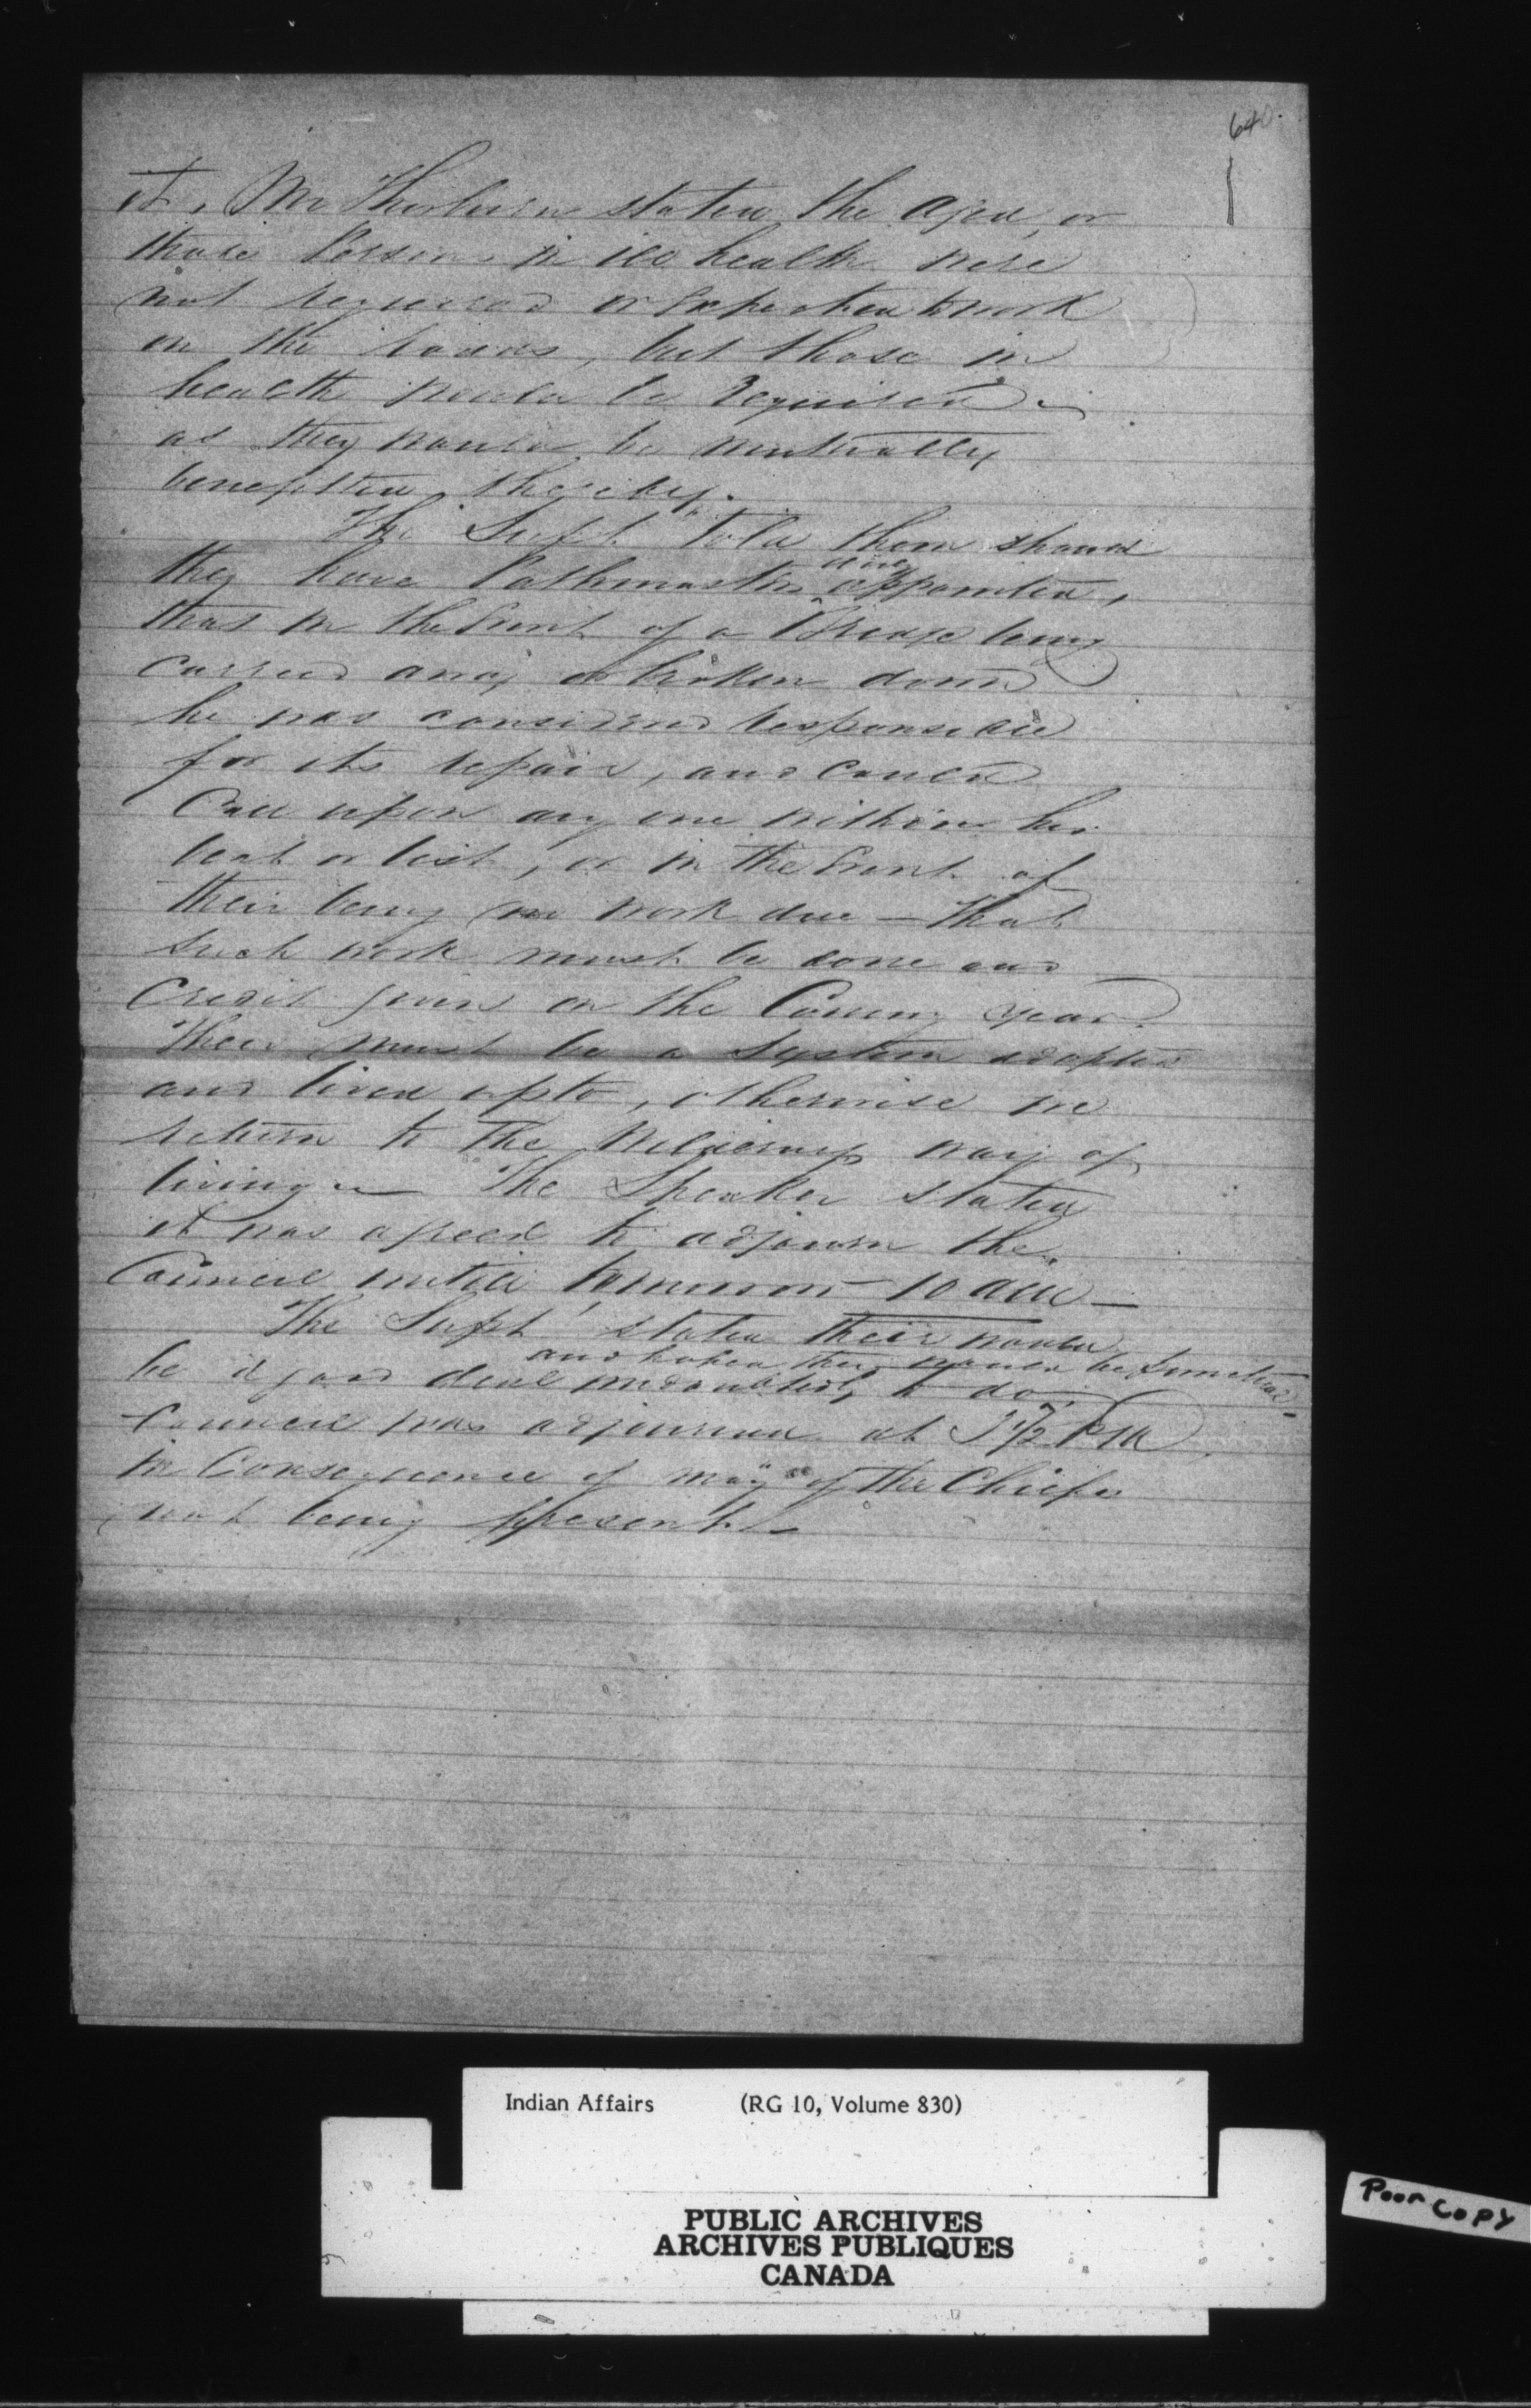 640.
it, Mr Thorburn stated the aged, or
those Persons in ill health were
not required or expected to work
on the roads, but those in
health would be required
as they would be mutually
benefitted thereby.
The Supt told them should
they have Pathmasters duly appointed,
that in the Event of a Bridge being
carried away or broken down
he was considered responsible
for its repair, and could
Call upon any one within his
beat or list, or in the Event of
their being no work due — that
such work must be done and
Credit given on the Coming year.
Their must be a System adopted
and lived up to, otherwise we
return to the way of
living — The Speaker stated
it was agreed to adjourn the
Council until tomorrow 10 AM —
The Supt stated their would
and hoped they would be punctual
be a good deal undoubtedly to do
Council was adjourned at 3 1/2 PM
in Consequence of many of the Chiefs
not being present —
Indian Affairs (RG 10, Volume 830)
PUBLIC ARCHIVES
ARCHIVES PUBLIQUES
CANADA
Poor Copy